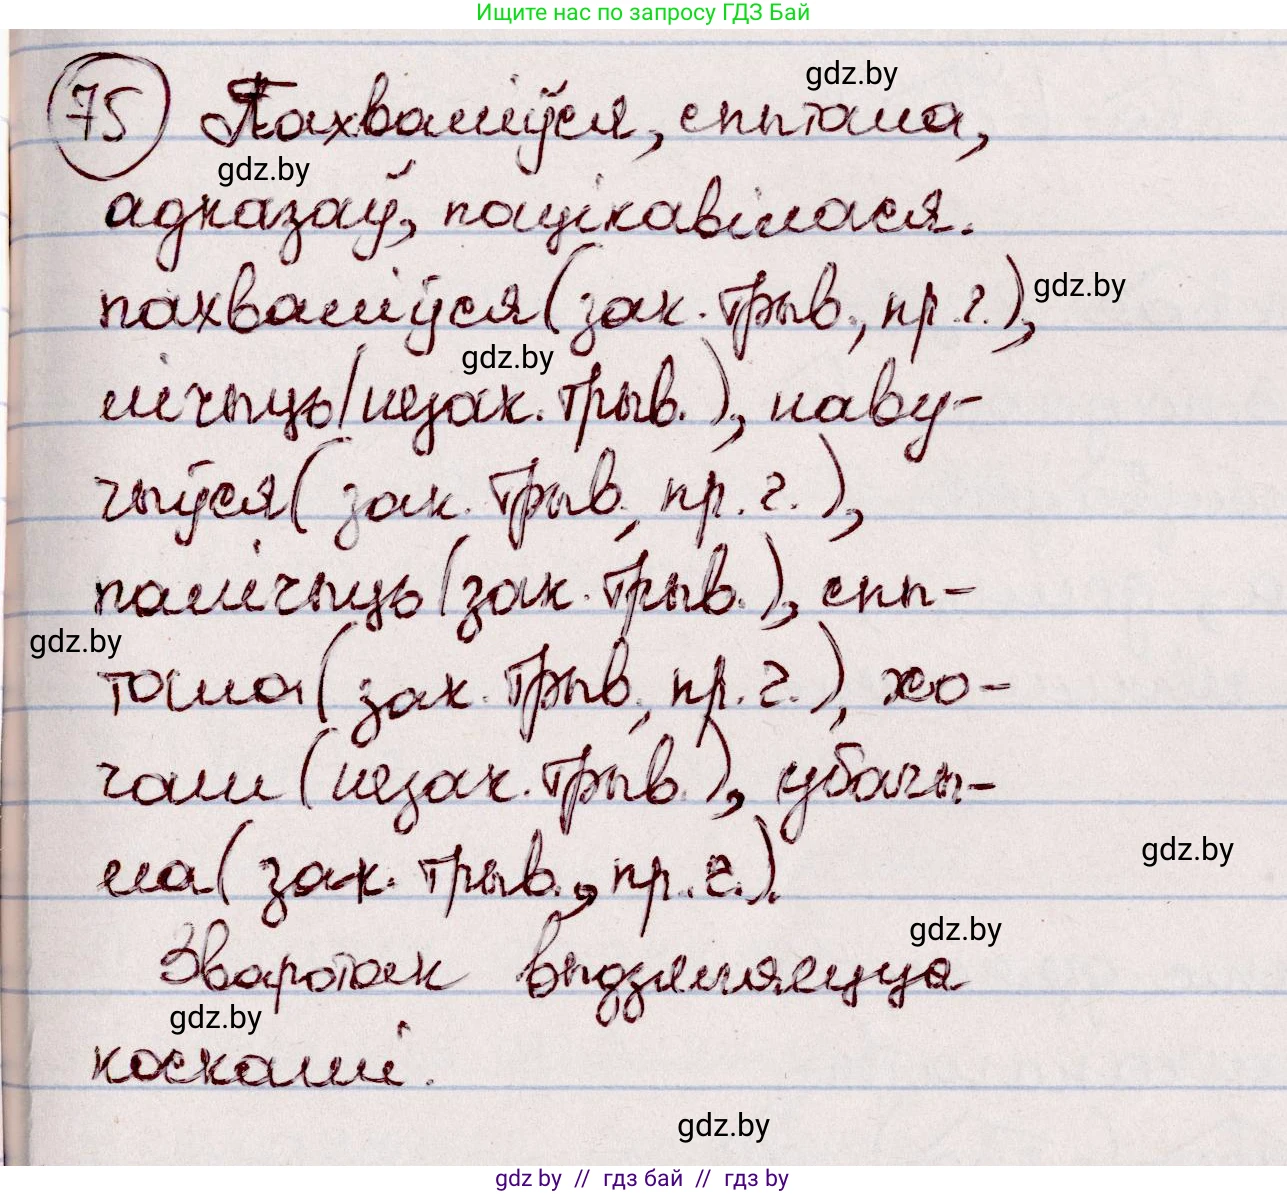 Ищите нас по запросу ГДЗ Бай
gdz.by
75 Пахваліўся, спытала,
gdz.by
адказаў, пацікавілася.
пахваліўся (зак. трыв., пр. г.),
gdz.by
gdz.by
лічыць (незак. трыв.), наву-
чыўся (зак. трыв., пр. г.),
палічыць (зак. трыв.), спы-
gdz.by
тала (зак. трыв., пр. г.), ха-
чалі (незак. трыв.), убачы-
gdz.by
ла (зак. трыв., пр. г.).
gdz.by
Зваротак выдзяляецца
gdz.by
коскамі.
gdz.by
gdz by // гдз бай // гдз by